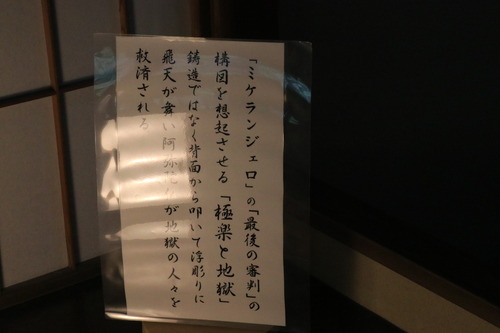 「ミケランジェロ」の「最後の審判」の
構図を想起させる「極楽と地獄」
鋳造ではなく背面から叩いて浮彫りに
飛天が舞い阿弥が地獄の人々を
救済される